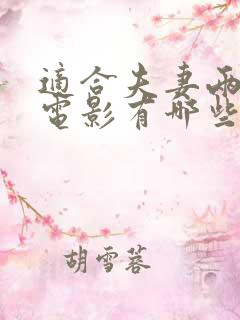 適合夫妻兩
電影有哪些
胡雪蓉